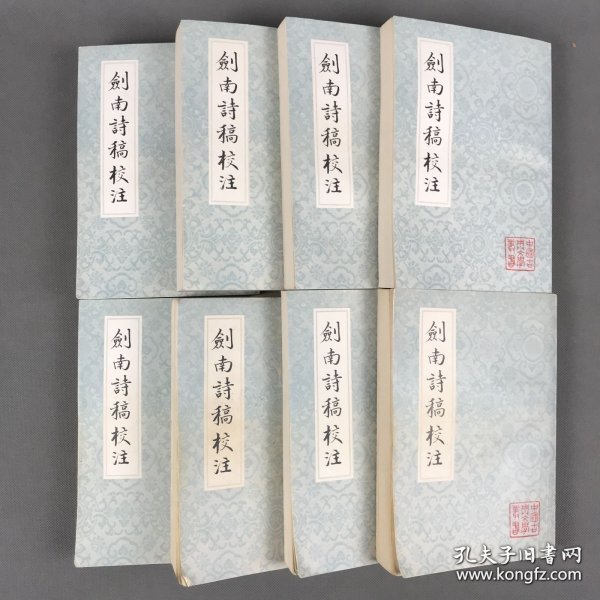 劍南詩稿校注
劍南詩稿校注
劍南詩稿校注
劍南詩稿校注
中國古
典文學
叢書
劍南詩稿校注
劍南詩稿校注
劍南詩稿校注
劍南詩稿校注
中國古
典文學
叢書
孔夫子旧书网
www.kongfz.com